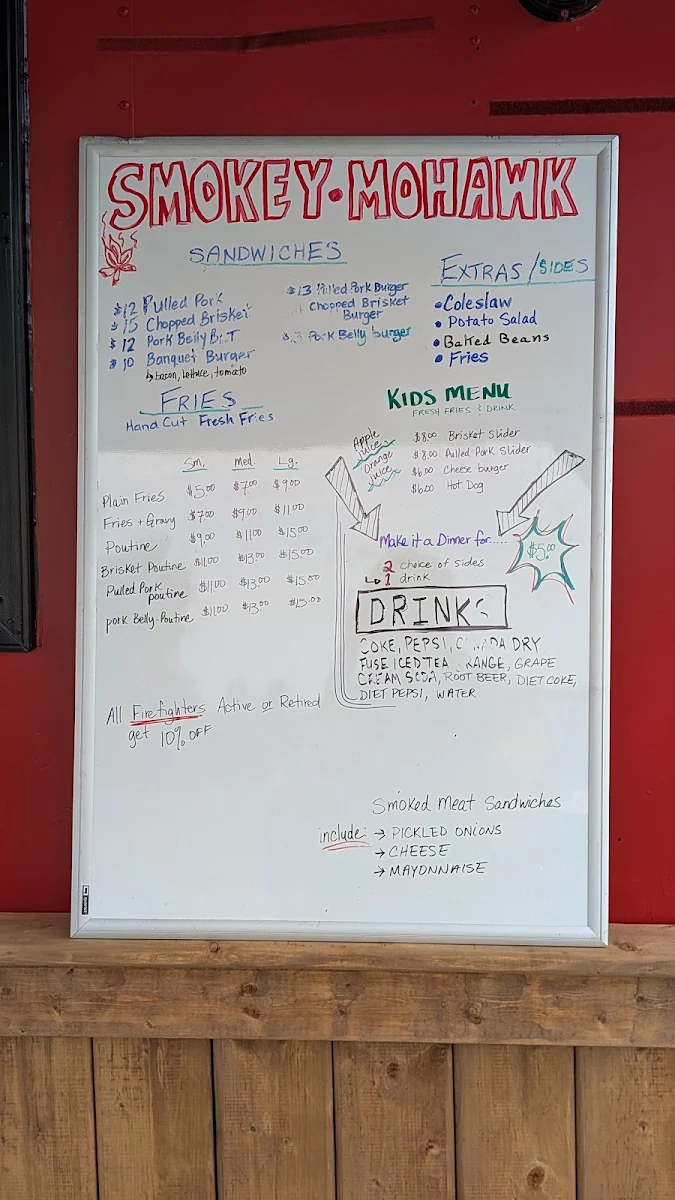 SMOKEY·MOHAWK
SANDWICHES
$12 Pulled Pork
$15 Chopped Brisket
$12 Pork Belly B.T
$10 Banquet Burger
bacon, lettuce, tomato
$13 Pulled Pork Burger
Chopped Brisket
Burger
Pork Belly burger
EXTRAS/SIDES
•Coleslaw
• Potato Salad
• Baked Beans
• Fries
FRIES
Hand Cut Fresh Fries
Sm. med. Lg.
Plain Fries $5.00 $7.00 $9.00
Fries + Gravy $7.00 $9.00 $11.00
Poutine $9.00 $11.00 $15.00
Brisket Poutine $11.00 $13.00 $15.00
Pulled Pork poutine $11.00 $13.00 $15.00
pork Belly-Poutine $11.00 $13.00 $15.00
KIDS MENU
FRESH FRIES & DRINK
Apple
Juice
Orange
Juice
$8.00 Brisket Slider
$8.00 Pulled Pork Slider
$6.00 Cheese burger
$6.00 Hot Dog
Make it a Dinner for.....
$5.00
2 choice of sides
1 drink
DRINKS
COKE, PEPSI, CANADA DRY
FUSE ICED TEA ORANGE, GRAPE
CREAM SODA, ROOT BEER, DIET COKE,
DIET PEPSI, WATER
All Firefighters Active or Retired
get 10% OFF
Smoked Meat Sandwiches
include: → PICKLED ONIONS
→ CHEESE
→ MAYONNAISE